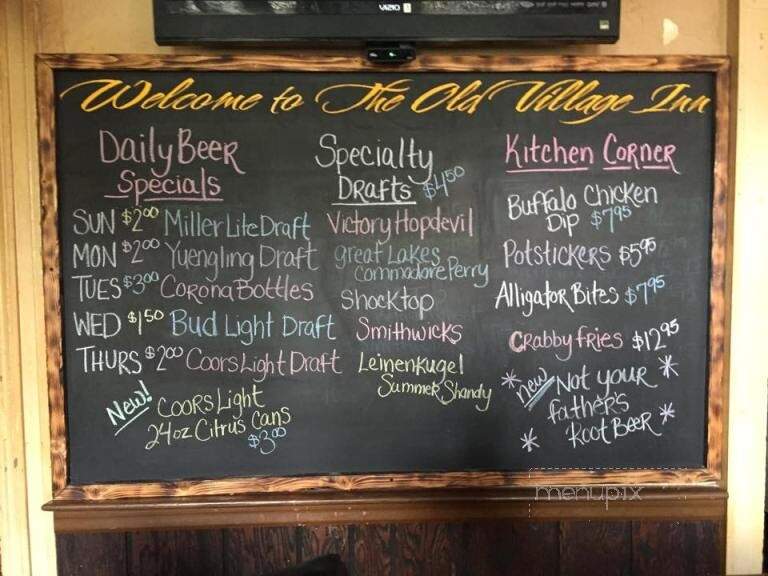 VIZIO
Welcome to The Old Village Inn
Daily Beer
Specials
SUN $2.00 Miller Lite Draft
MON $2.00 Yuengling Draft
TUES $3.00 Corona Bottles
WED $1.50 Bud Light Draft
THURS $2.00 Coors Light Draft
New! Coors Light
24oz Citrus Cans
$3.00
Specialty
Drafts $4.50
Victory Hopdevil
great Lakes
Commadore Perry
Shocktop
Smithwicks
Leinenkugel
Summer Shandy
Kitchen Corner
Buffalo Chicken
Dip $7.95
Potstickers $5.95
Alligator Bites $7.95
Crabby fries $12.95
* new Not your *
father's
* Root Beer *
menupix